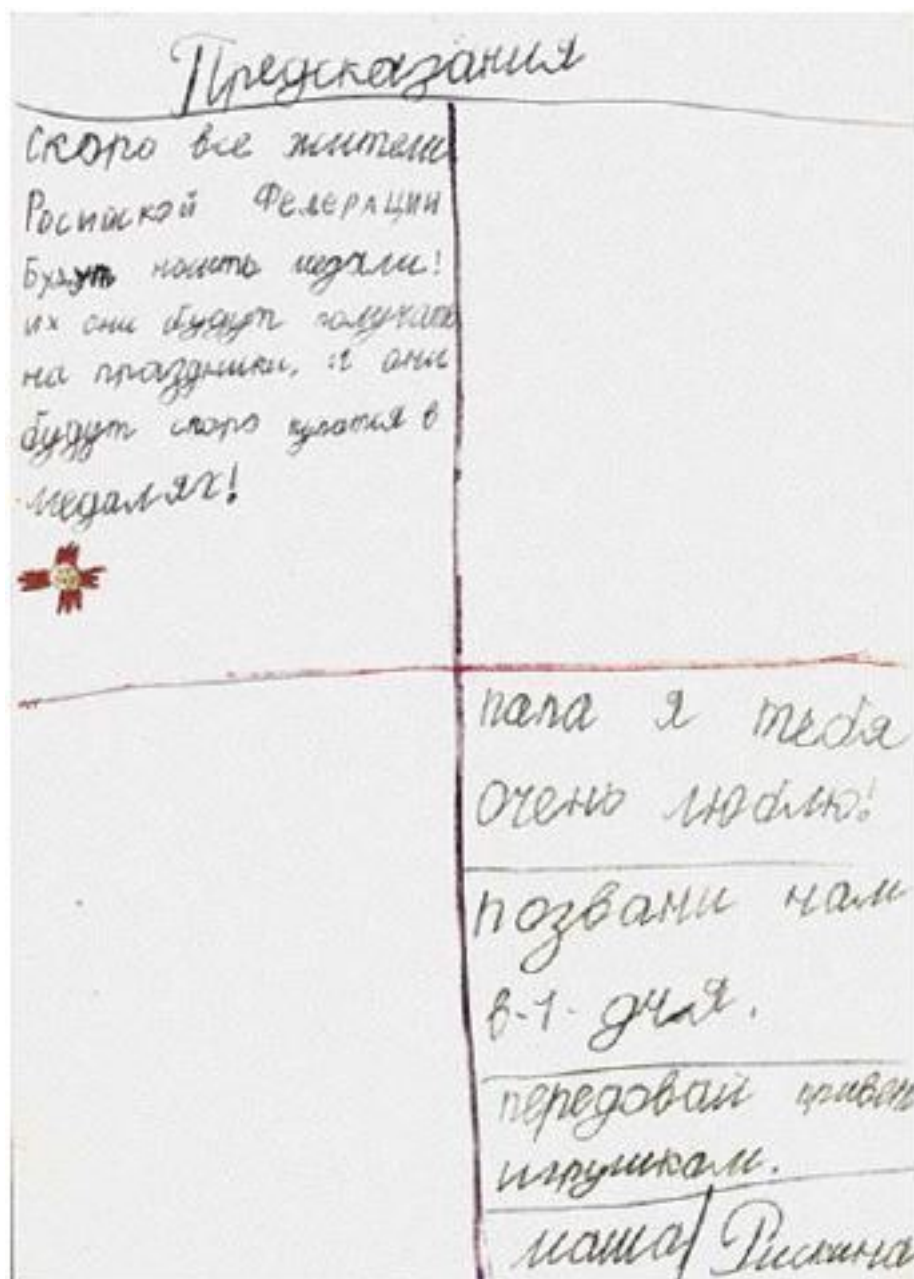 Предсказания
Скоро все жители
Росийской Федерации
Будут носить медали!
их они будут получать
на праздники, и они
будут скоро купатся в
медалях!
папа я тебя
очень люблю!
позвани нам
в-1-дня.
передовай привет
игрушкам.
маша/ Рискина